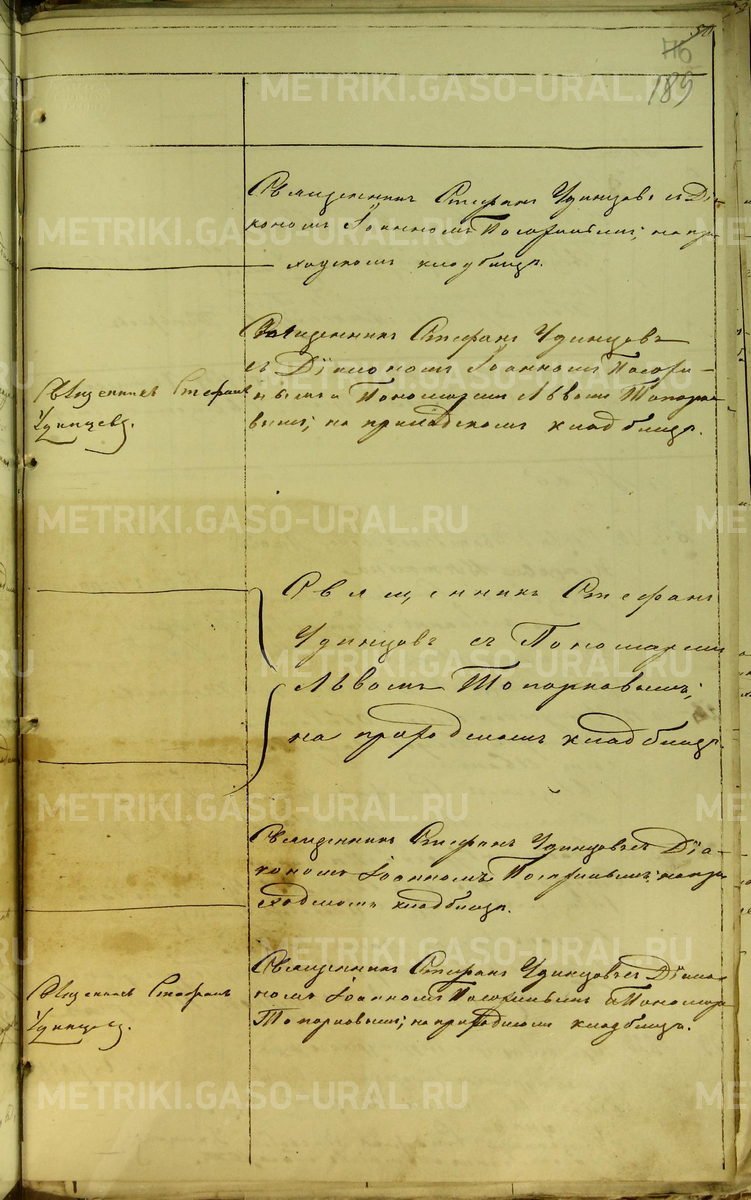 189
METRIKI.GASO-URAL.RU
Священникъ Стефанъ Удинцовъ съ Діа-
кономъ Іоанномъ на при-
ходскомъ кладбищѣ.
Священникъ Стефанъ Удинцовъ
съ Діакономъ Іоанномъ
и Пономаремъ Львомъ Топорко-
вымъ, на приходскомъ кладбищѣ.
Священникъ Стефанъ
Удинцовъ.
METRIKI.GASO-URAL.RU
Священникъ Стефанъ
Удинцовъ съ Пономаремъ
Львомъ Топорковымъ,
на приходскомъ кладбищѣ.
METRIKI.GASO-URAL.RU
Священникъ Стефанъ Удинцовъ съ Діа-
кономъ Іоанномъ на при-
ходскомъ кладбищѣ.
METRIKI.GASO-URAL.RU
Священникъ Стефанъ Удинцовъ съ Діако-
номъ Іоанномъ и Пономаре
Топорковымъ, на приходскомъ кладбищѣ.
Священникъ Стефанъ
Удинцовъ.
METRIKI.GASO-URAL.RU